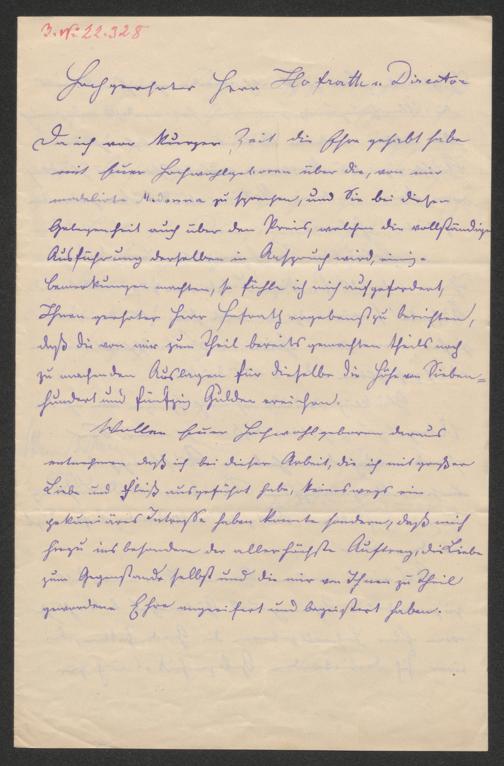 J. N: 22.328
Hochgeehrter Herr Hofrath u. Director
Da ich vor kurzer Zeit die Ehre gehabt habe
mit Euer Hochwohlgeboren über die, von mir
modelirte Madonna zu sprechen, und Sie bei dieser
Gelegenheit auch über den Preis, welchen die vollständige
Ausführung derselben in Anspruch wird, einig-
bemerkungen machten, so fühle ich mich aufgefordert,
Ihnen geehrter Herr Hofrath ergebenst zu berichten,
daß die von mir zum Theil bereits gemachten theils noch
zu machenden Auslagen für dieselbe die Höhe von Sieben=
hundert und fünfzig Gulden erreichen.
Wollen Euer Hochwohlgeboren daraus
entnehmen daß ich bei dieser Arbeit, die ich mit großer
Liebe und Fleiß ausgeführt habe, keineswegs ein
pekuniäres Interesse haben konnte sondern, daß mich
hiezu insbesondere der allerhöchste Auftrag, die Liebe
zum Gegenstande selbst und die mir von Ihnen zu Theil
gewordene Ehre angeeifert und begeistert haben.